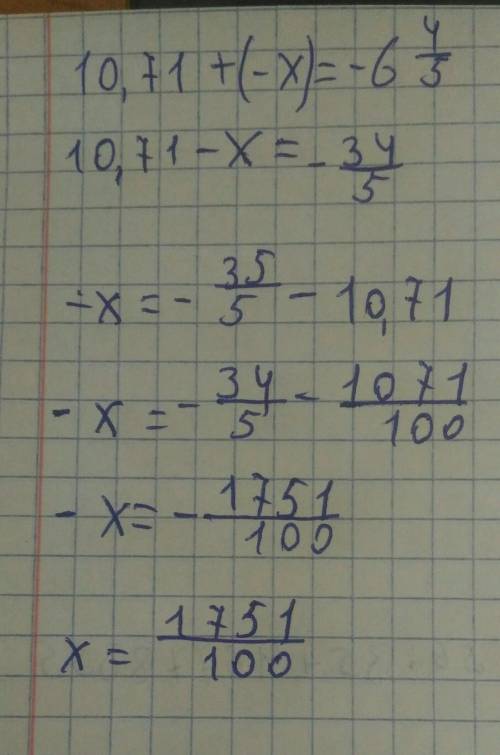 10,71 + (-x) = -6 4/5
10,71 - x = - 34/5
-x = - 35/5 - 10,71
- x = - 34/5 - 1071/100
- x = - 1751/100
x = 1751/100